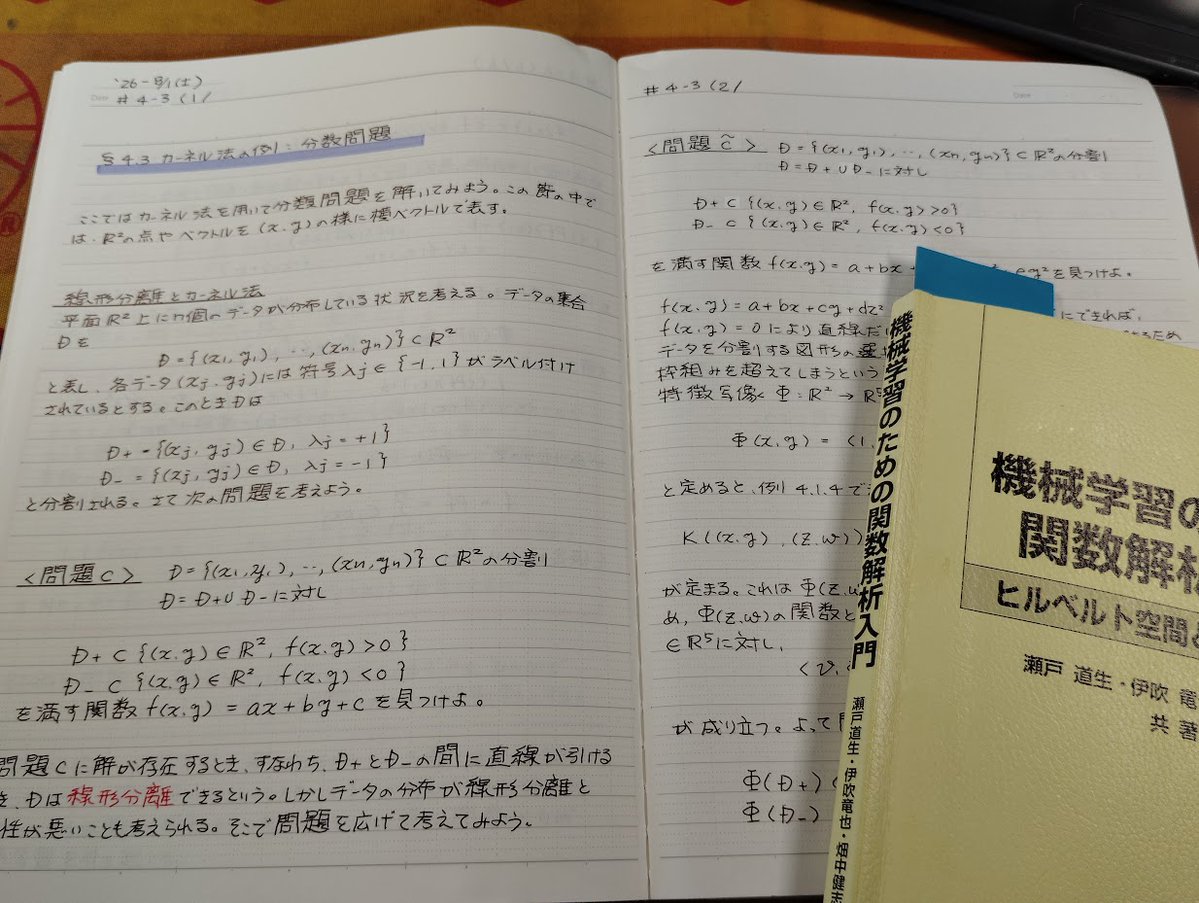 '26-8/1(土)
Date
#4-3 (1/
§4.3 カーネル法の例:分数問題
ここではカーネル法を用いて分類問題を解いてみよう。この節の中で
は、R²の点やベクトルを(x,y)の様に横ベクトルで表す。
線形分離とカーネル法
平面R²上にn個のデータが分布している状況を考える。データの集合
Dを
D={(x₁,y₁),‥,(xn,yn)}⊂R²
と表し、各データ(xj,yj)には符号λj∈{-1,1}がラベル付け
されているとする。このときDは
D+={(xj,yj)∈D, λj=+1}
D-={(xj,yj)∈D, λj=-1}
と分割される。さて次の問題を考えよう。
<問題C> D={(x₁,y₁),‥,(xn,yn)}⊂R²の分割
D=D+∪D-に対し
D+⊂{(x,y)∈R², f(x,y)>0}
D-⊂{(x,y)∈R², f(x,y)<0}
を満す関数f(x,y)=ax+by+cを見つけよ。
問題Cに解が存在するとき、すなわち、D+とD-の間に直線が引ける
き、Dは線形分離できるという。しかしデータの分布が線形分離と
性が悪いことも考えられる。そこで問題を広げて考えてみよう。
#4-3 (2/
Date
<問題C̃> D={(x₁,y₁),‥,(xn,yn)}⊂R²の分割
D=D+∪D-に対し
D+⊂{(x,y)∈R², f(x,y)>0}
D-⊂{(x,y)∈R², f(x,y)<0}
を満す関数f(x,y)=a+bx+ ey²を見つけよ。
f(x,y)=a+bx+cy+dx² にできれば,
f(x,y)=0により直線だ
データを分割する図形の選
枠組みを超えてしまうという
特徴写像Φ:R²→R⁵
Φ(x,y)=(1,
と定めると、例4.1.4で
K((x,y),(z,w))
が定まる。これはΦ(z,w
め,Φ(z,w)の関数と
∈R⁵に対し,
<v,
が成り立つ。よって
Φ(D+)
Φ(D-)
機械学習のための関数解析入門
瀬戸道生・伊吹竜也・畑中健志
機械学習の
関数解析
ヒルベルト空間
瀬戸 道生・伊吹 竜
共著